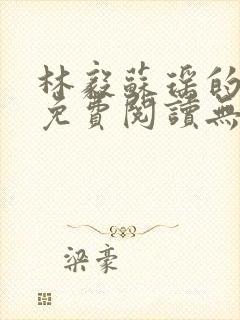 林毅蘇瑶的
免費閱讀無
梁豪